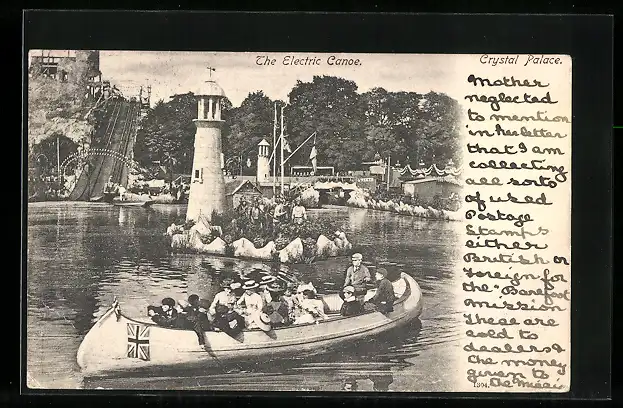 The Electric Canoe.
Crystal Palace.
Mother
neglected
to mention
in her letter
that I am
collecting
all sorts
of used
Postage
Stamps
either
British or
Foreign for
the "Barefoot
Mission
These are
sold to
dealers &
the money
given to
the